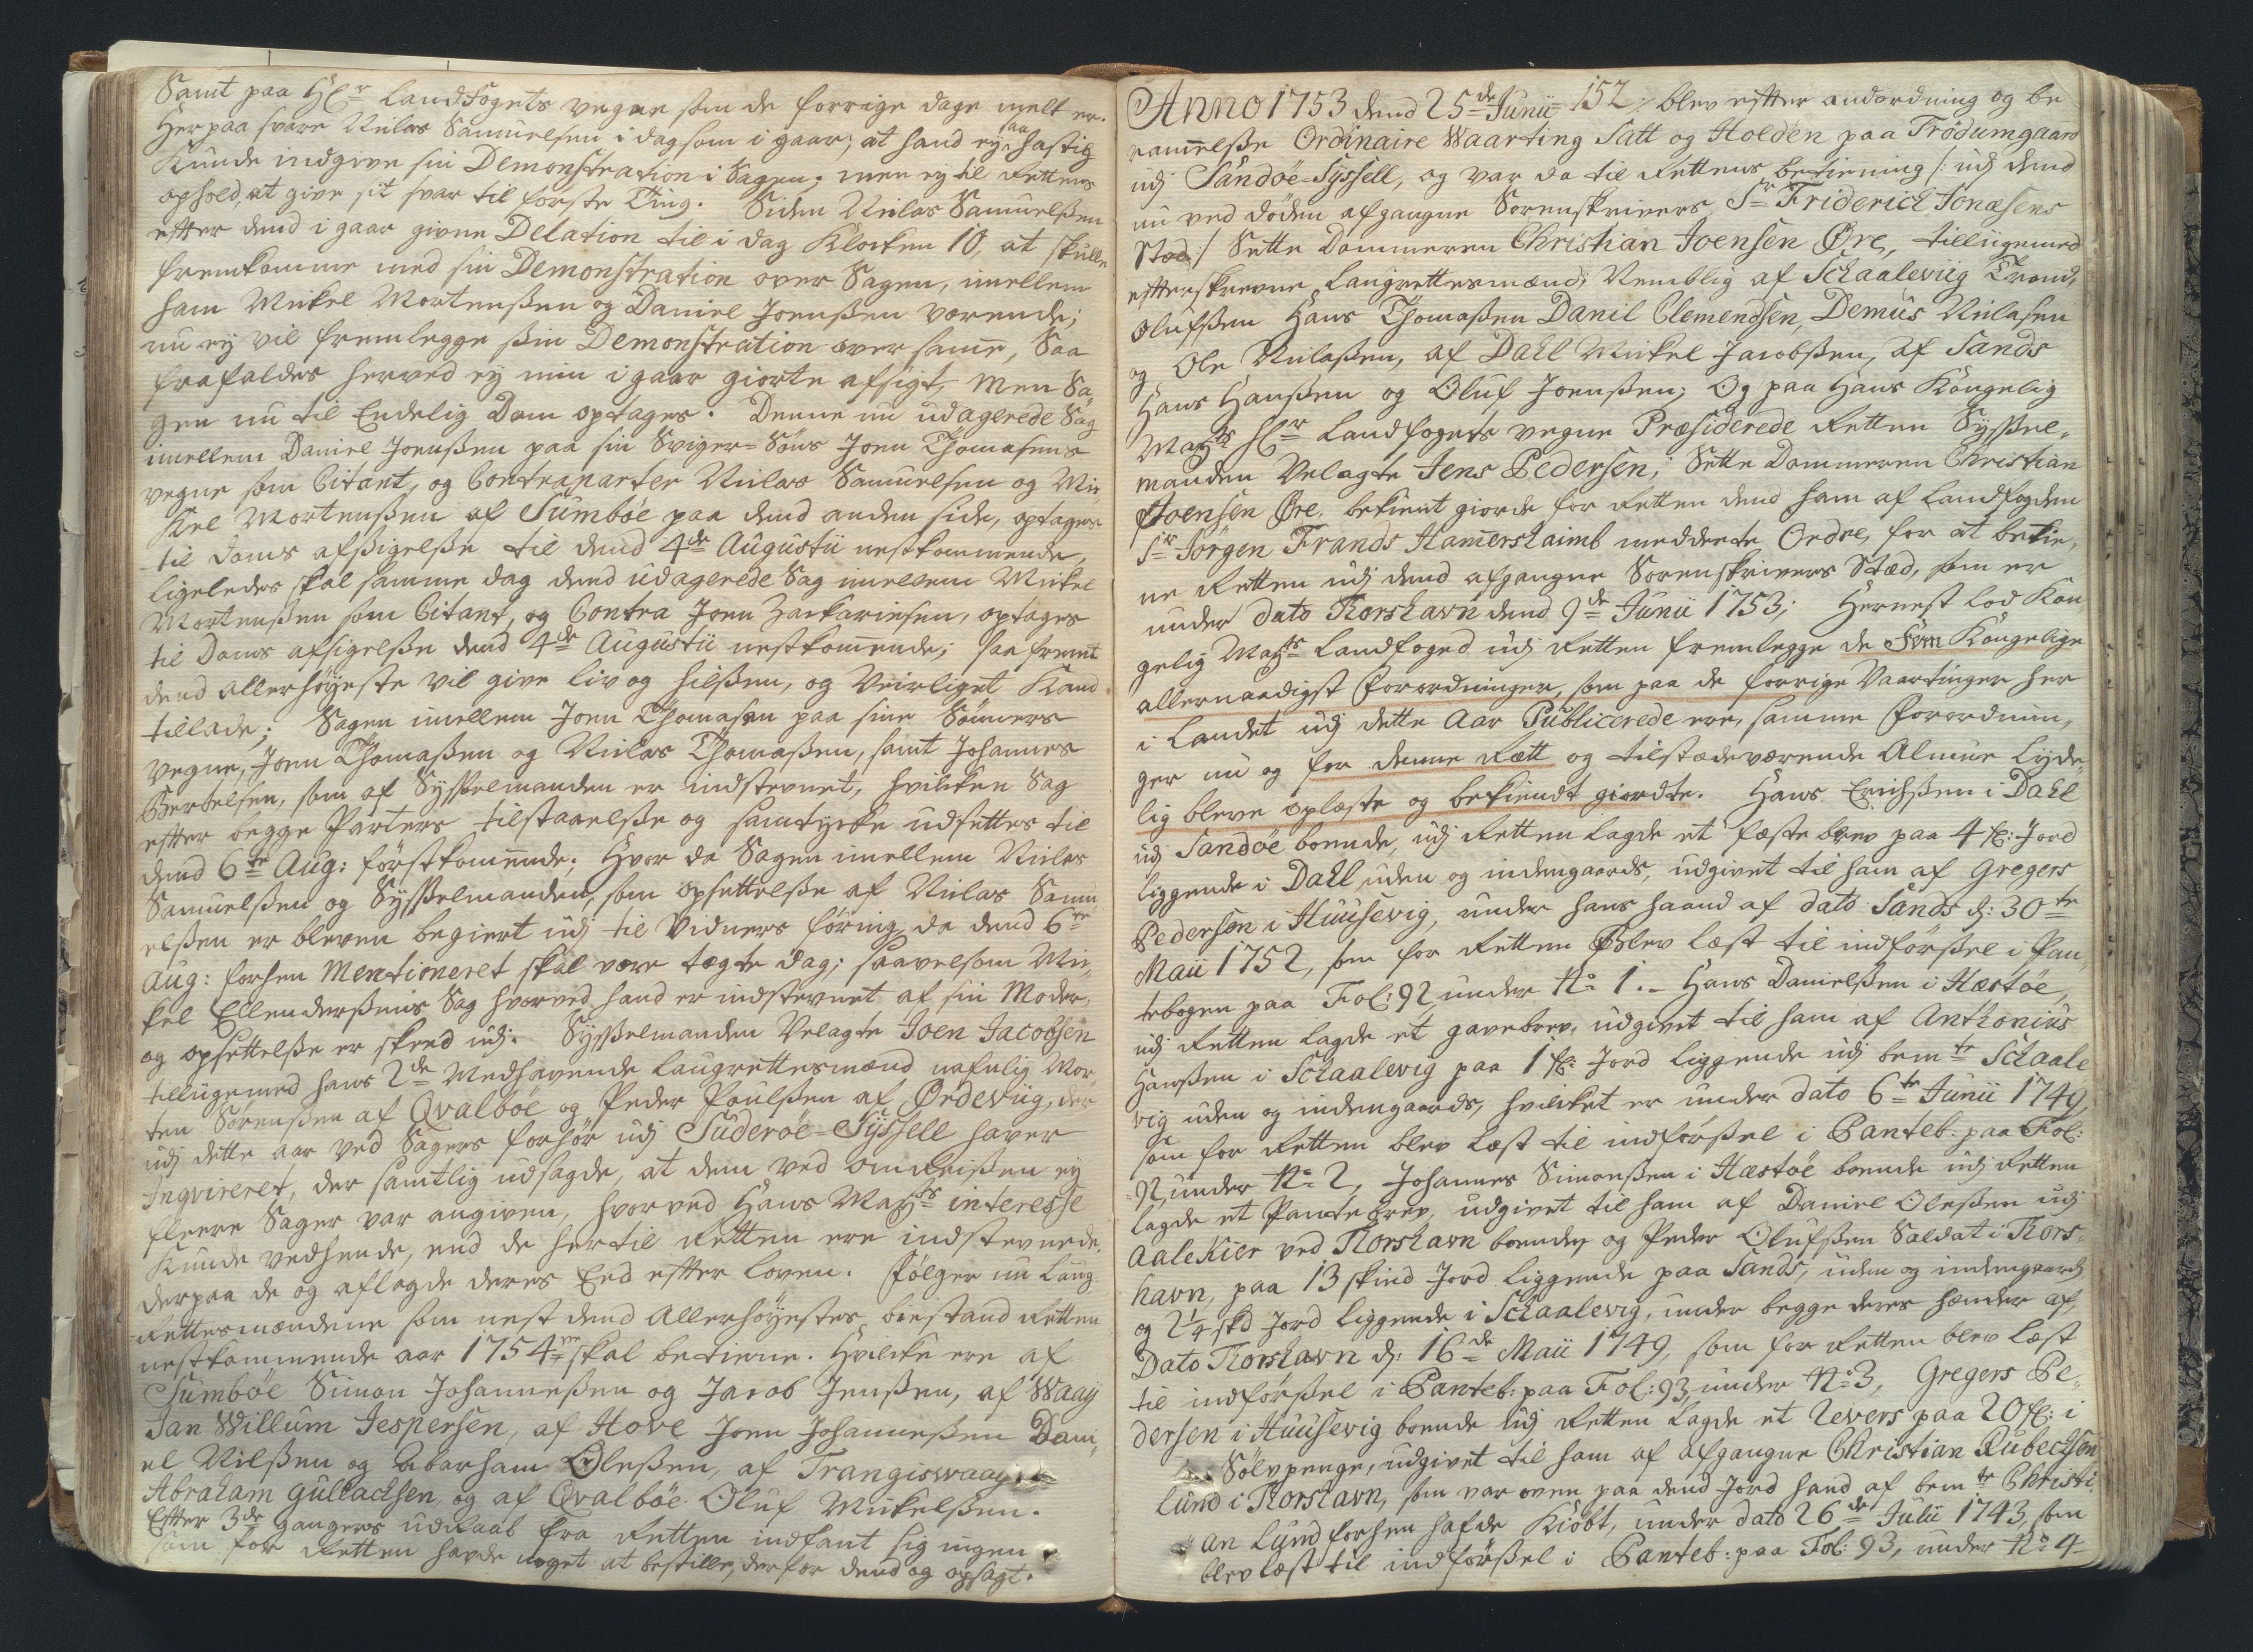 Samt paa Hr Landfogets vegne som de forrige dage melt er.
Herpaa svare Niclas Samuelsen i dag som i gaar; at hand ey saa hastig
Kunde indgive sin Demonstration i Sagen; men ey til Rettens
ophold, at give sit svar til første Ting. Siden Niclas Samuelßen
efter dend i gaar givne Delation til i dag Klocken 10, at skulle
fremkomme med sin Demonstration over Sagen, imellem
ham Mickel Mortenßen og Daniel Joenßen værende;
nu ey vil fremlegge ßin Demonstration over samme, Saa
frafaldes herved ey min i gaar giorte afsigt, Men Sa„
gen nu til Endelig Dom optages. Denne nu udagerede Sag
imellem Daniel Joenßen paa sin Sviger-Søns Joen Thomasens
vegne som Citant, og Contraparter Niclas Samuelsen og Mic„
kel Mortenßen af Sumbøe paa dend anden side, optages
til doms afsigelße til dend 4de Augustii nestkommende,
ligeledes skal samme dag dend udagerede Sag imellem Mickel
Mortenßen som Citant, og Contra Joen Zackariesen, optages
til Doms afsigelße dend 4de Augustii nestkommende; saa fremt
dend allerhøyeste vil give liv og hilßen, og Veirliget Kand
tillade; Sagen imellem Joen Thomasen paa sine Sønners
vegne, Joen Thomaßen og Niclas Thomaßen, samt Johannes
Bertelsen, som af Sysselmanden er indstevnet, hvilcken Sag
efter begge Parters tilstaaelße og samtycke udsettes til
dend 6te Aug: førstkommende; Hvor da Sagen imellem Niclas
Samuelßen og Sysselmanden, som opsettelße af Niclas Samu
elßen er bleven begiert udj til Vidners føring, da dend 6te
Aug: forhen Mentioneret skal være tægte dag; saavelsom Mic„
kel Ellendersßens Sag hvorved hand er indstevnet af sin Moder,
og opsettelße er skeed udj. Sysselmanden Velagte Joen Jacobsen
tilligemed hans 2de Medhavende Laugrettesmænd nafnlig Mor„
ten Sørensen af Qvalbøe og Peder Poulßen af Ørdeviig, der
udj dette aar ved Sagers forhør udj Suderøe-Sysßell haver
Inqvireret, der samtlig udsagde, at dem ved omreißen ey
fleere Sager var angiven, hvorved Hans Mayts interesse
Kunde vedhende, end de hertil Retten ere indstevnede.
derpaa de og aflagde deres Eed efter Loven. Følger nu Laug-
Rettesmændene som nest dend Allerhøyestes biestand Retten
nestkommende aar 1754 skal betiene. Hvilcke ere af
Sumbøe Simon Johannesßen og Jacob Jensßen, af Waaij
Jan Willum Jespersen, af Hove Joen Johannesßen Dani„
el Nilßen og Abarham Oleßen, af Trangiswaag
Abraham Gullachsen, og af Qvalbøe Oluf Mickelßen.
Efter 3de gangers udRaab fra Retten indfant sig ingen
som for Retten hafde noget at bestille, derfor dend og opsagt.
Anno 1753 dend 25de Junii 152 blev efter andordning og be
ramelße Ordinaire Waarting Satt og Holden paa Trødumgaard
udj Sandøe-Syssell, og var da til Rettens betiening /: udj dend
nu ved døden afgangne Sorenskrivers Sr Friderich Jonæsens
Stæd :/ Sette Dommeren Christian Joensen Øre, tilliigemed
efterskrevne Laugrettesmænd; Nemblig af Schaaleviig Trond
Olufßen Hans Thomaßen Danil Clemendsen, Demus Niclasen
og Ole Niclaßen, af Dahl Mickel Jacobßen, af Sands
Hans Hansßen og Oluf Joenßen; Og paa Hans Kongelig
Mayts Hr Landfogets vegne Præsiderede Retten Syssel„
manden Velagte Jens Pedersen; Sette Dommeren Christian
Joensen Øre, bekient giorde for Retten dend ham af Landfogden
Sr Jørgen Frands Hammershaimb meddeelte Ordre, for at betie„
ne Retten udj dend afgangne Sorenskrivers Stæd, som er
under dato Thorshavn dend 9de Junii 1753; Hernest lod Kon
gelig Mayts Landfoged udj Retten fremlegge de Fem Kongelige
allernaadigst Forordninger, som paa de forrige Vaartinger her
i Landet udj dette Aar Publicerede ere, samme Forordnin„
ger nu og for denne Rætt og tilstædeværende Almue Lyde„
lig bleve oplæste og bekiendt giordte. Hans Erichßen i Dahl
udj Sandøe boende, udj Retten lagde et fæste brev paa 4 : Jord
liggende i Dahl, uden og indengaards, udgivet til ham af Gregers
Pedersen i Huusevig, under hans haand af dato Sands d: 30te
Maii 1752, som for Retten blev læst til indførßel i Pan„
tebogen paa Fol: 92 under No 1. – Hans Danielßen i Hæstøe,
udj Retten lagde et gavebrev, udgivet til ham af Anthonius
Hansßen i Schaalevig paa 1 : Jord liggende udj bemte Schaale
vig uden og indengaards, hvilcket er under dato 6te Junii 1749,
som for Retten blev læst til indførßel i Panteb: paa Fol:
92, under No 2, Johannes Simonßen i Hæstøe boende udj Retten
lagde et Pantebrev, udgivet til ham af Daniel Oleßen udj
Aalekier ved Thorshavn boende og Peder Olufßen Saldat i Thors-
havn, paa 13 skind Jord liggende paa Sands, uden og indengaards
og 2¼ skd Jord liggende i Schaalevig, under begge deres hænder af
Dato Thorshavn d: 16de Maii 1749, som for Retten blev læst
til indførßel i Panteb: paa Fol: 93, under No 3, Gregers Pe„
dersen i Huusevig boende udj Retten lagde et Revers paa 20 : i
Sølvpenge, udgivet til ham af afgangne Christian Rubechsen
Lund i Thorshavn, som var oven paa dend Jord hand af bemte Christi„
an Lund forhen hafde Kiøbt, under dato 26de Julii 1743, som
blev læst til indførßel i Panteb: paa Fol: 93, under No 4